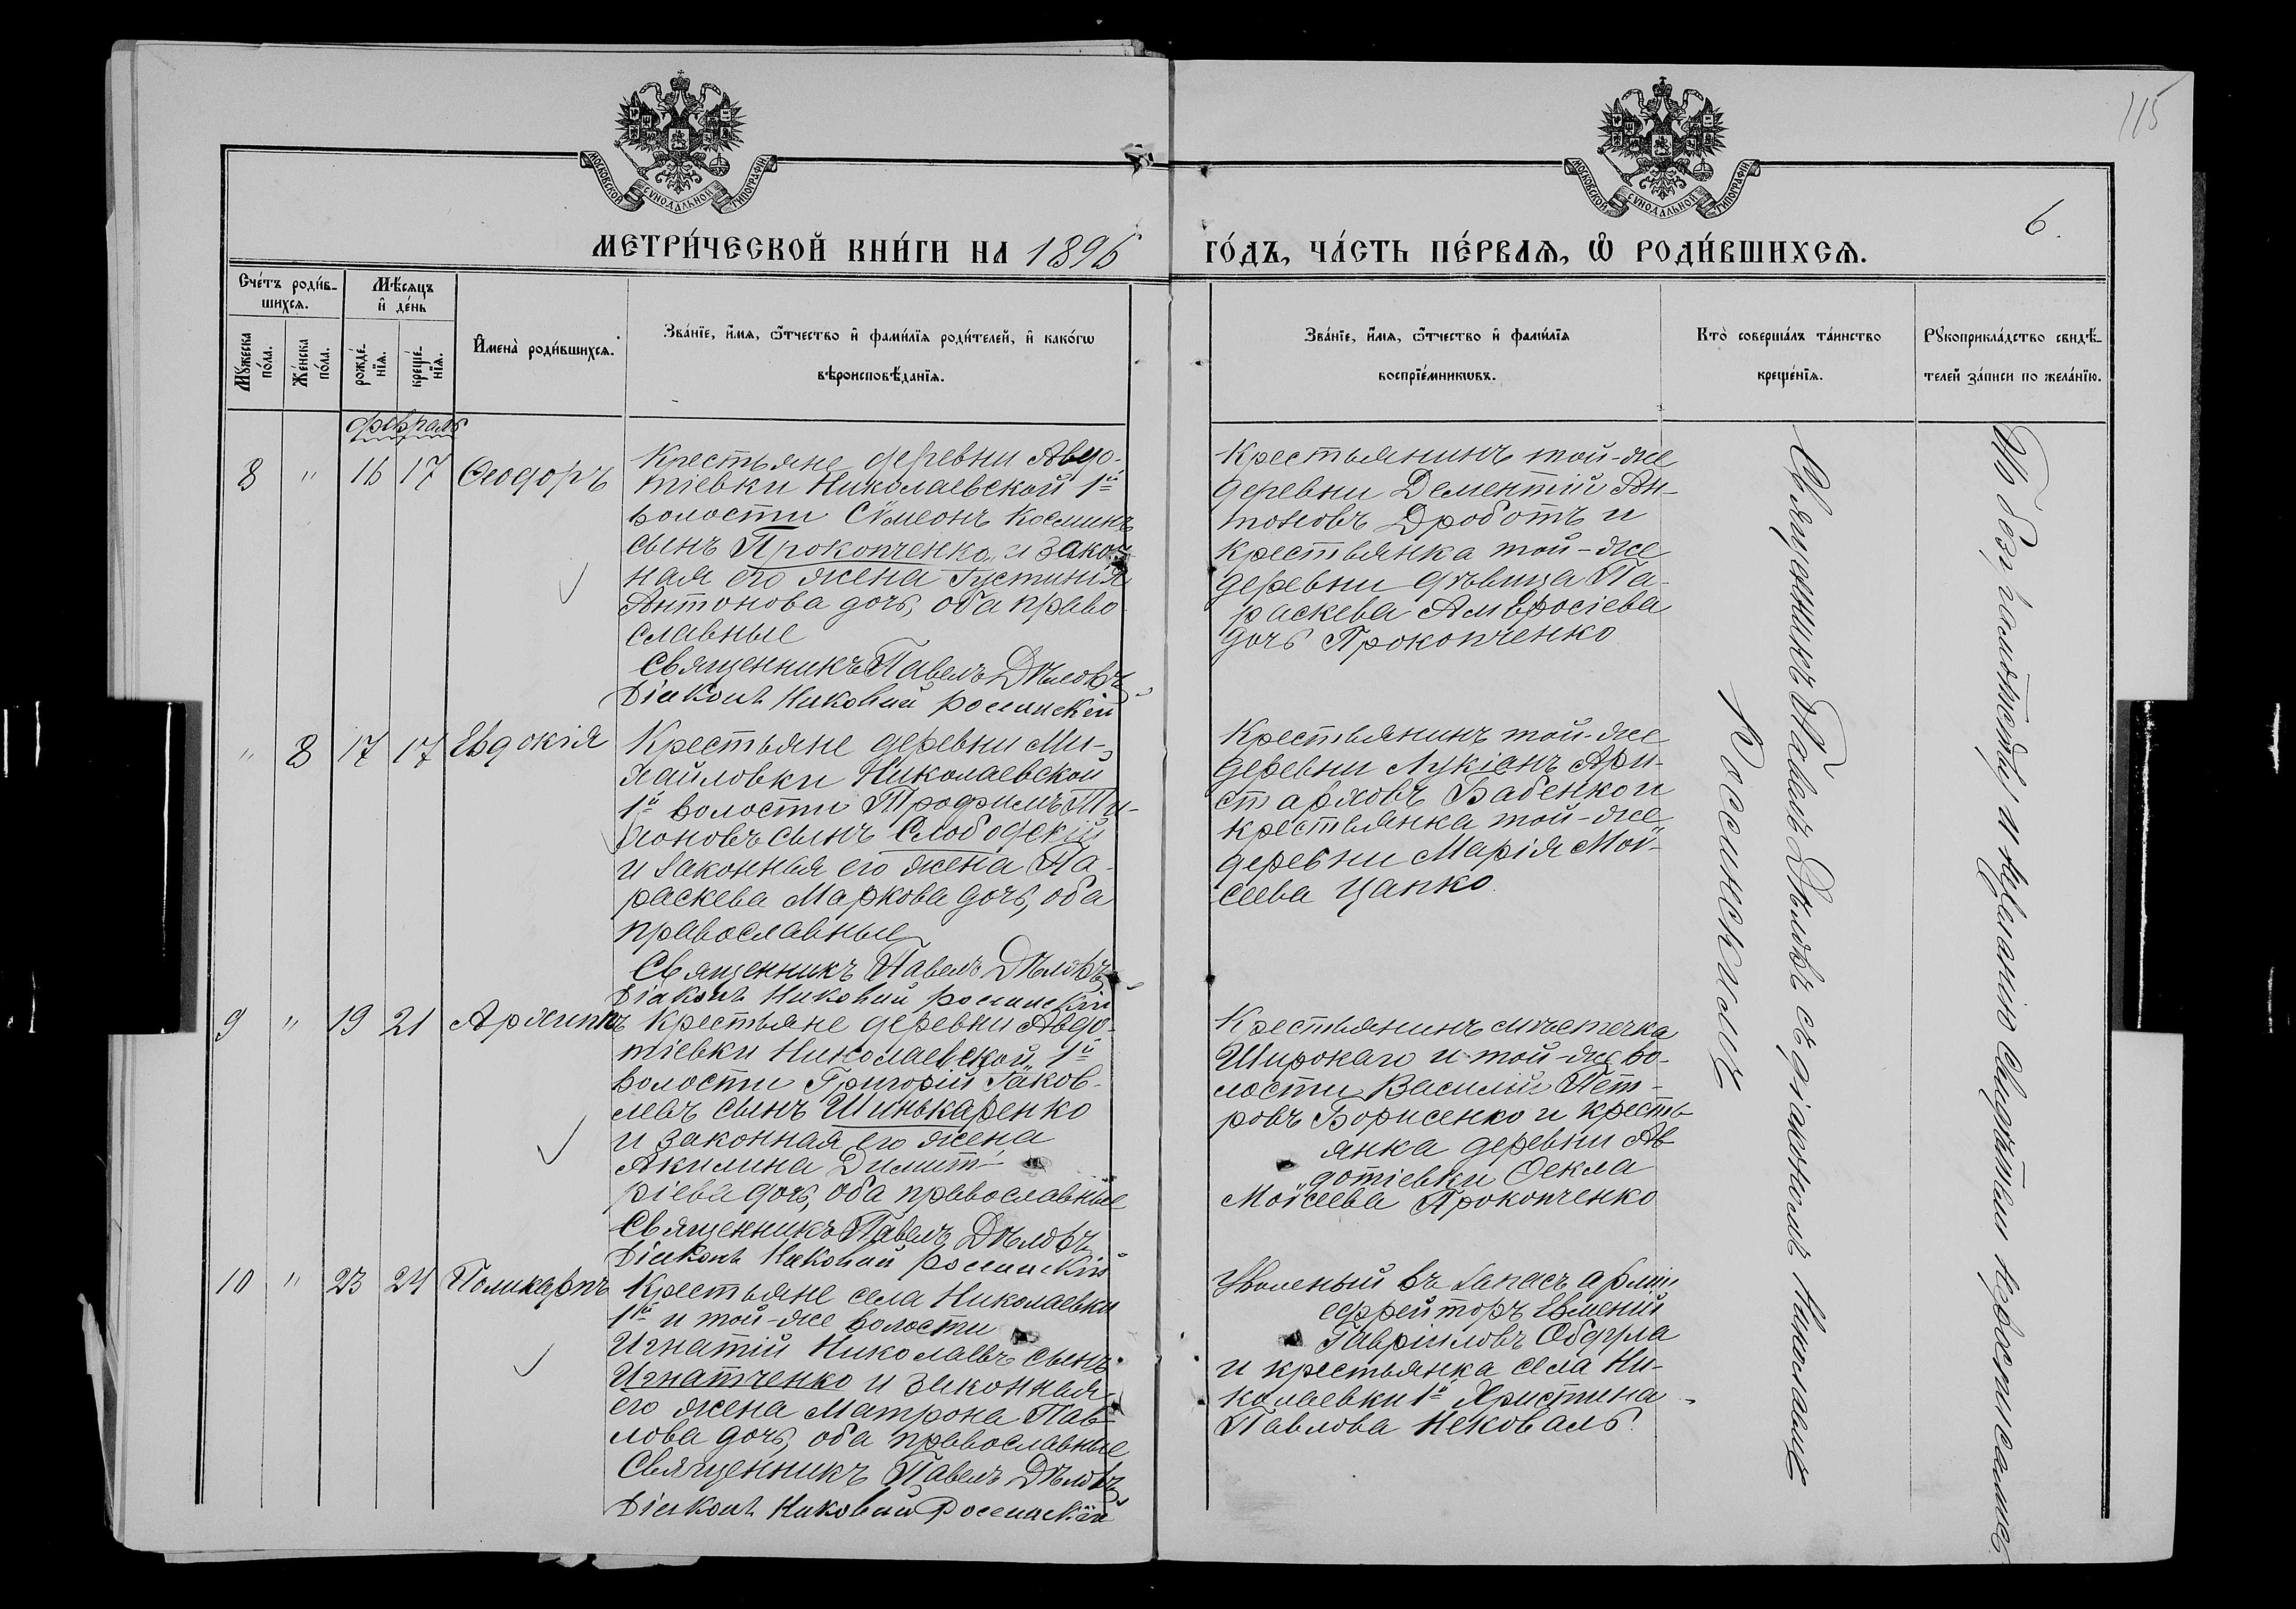 115
МОСКОВСКОЙ СѴНОДАЛЬНОЙ ТИПОГРАФІИ
МОСКОВСКОЙ СѴНОДАЛЬНОЙ ТИПОГРАФІИ
6.
МЕТРИ́ЧЕСКОЙ КНИ́ГИ НА 1896
ГО́ДЪ, ЧА́СТЬ ПЕ́РВАѦ, Ѡ҆ РОДИ́ВШИХСѦ.
Сче́тъ роди́в-
шихсѧ.
Мꙋ́жеска
по́ла.
Же́нска
по́ла.
Мѣ́сѧцъ
и҆ де́нь
рожде́-
нїѧ.
креще́-
нїѧ.
И҆мена̀ роди́вшихсѧ.
Зва́нїе, и҆́мѧ, ѻ҆́тчество и҆ фами́лїѧ роди́телей, и҆ како́гѡ
вѣроисповѣ́данїѧ.
Зва́нїе, и҆́мѧ, ѻ҆́тчество и҆ фами́лїѧ
воспрїе́мникѡвъ.
Кто̀ соверша́лъ та́инство
креще́нїѧ.
Рꙋкоприкла́дство свидѣ́-
телей за́писи по жела́нїю.
февраль
8 " 16 17 Ѳеодоръ
Крестьяне деревни Авдо-
тіевки Николаевской 1й
волости Сѵмеонъ Косминъ
сынъ Прокопченко и закон
ная его жена Іустинія
Антонова дочь, оба право
славные
Священникъ Павелъ Дѣловъ
Діаконъ Николай Россинскій
Крестьянинъ той-же
деревни Дементій Ан-
тоновъ Дроботъ и
крестьянка той-же
деревни дѣвица Па-
раскева Амвросіева
дочь Прокопченко
" 8 17 17 Евдокія
Крестьяне деревни Ми-
хайловки Николаевской
1й волости Трофимъ Ти-
хоновъ сынъ Слободскій
и законная его жена Па-
раскева Маркова дочь, оба
православные
Священникъ Павелъ Дѣловъ
Діаконъ Николай Россинскій
Крестьянинъ той-же
деревни Лукіанъ Ари-
старховъ Бабенко и
крестьянка той-же
деревни Марія Мои-
сеева Цапко
9 " 19 21 Архиппъ
Крестьяне деревни Авдо-
тіевки Николаевской 1й
волости Григорій Іаков-
левъ сынъ Шинькаренко
и законная его жена
Акилина Димит-
ріева дочь, оба православные
Священникъ Павелъ Дѣловъ
Діаконъ Николай Россинскій
Крестьянинъ мѣстечка
Широкаго и той-же во-
лости Василій Пет-
ровъ Борисенко и кресть-
янка деревни Ав
дотіевки Ѳекла
Моисеева Прокопченко
10 " 23 24 Поликарпъ
Крестьяне села Николаевки
1й и той-же волости
Игнатій Николаевъ сынъ
Игнатченко и законная
его жена Матрона Пав-
лова дочь, оба православные
Священникъ Павелъ Дѣловъ
Діаконъ Николай Россинскій
Уволенный въ запасъ арміи
ефрейторъ Евменій
Гавріиловъ
и крестьянка села Ни-
колаевки 1й Христина
Павлова Нековаль.
Священникъ Павелъ Дѣловъ съ діакономъ Николаемъ
Россинскимъ